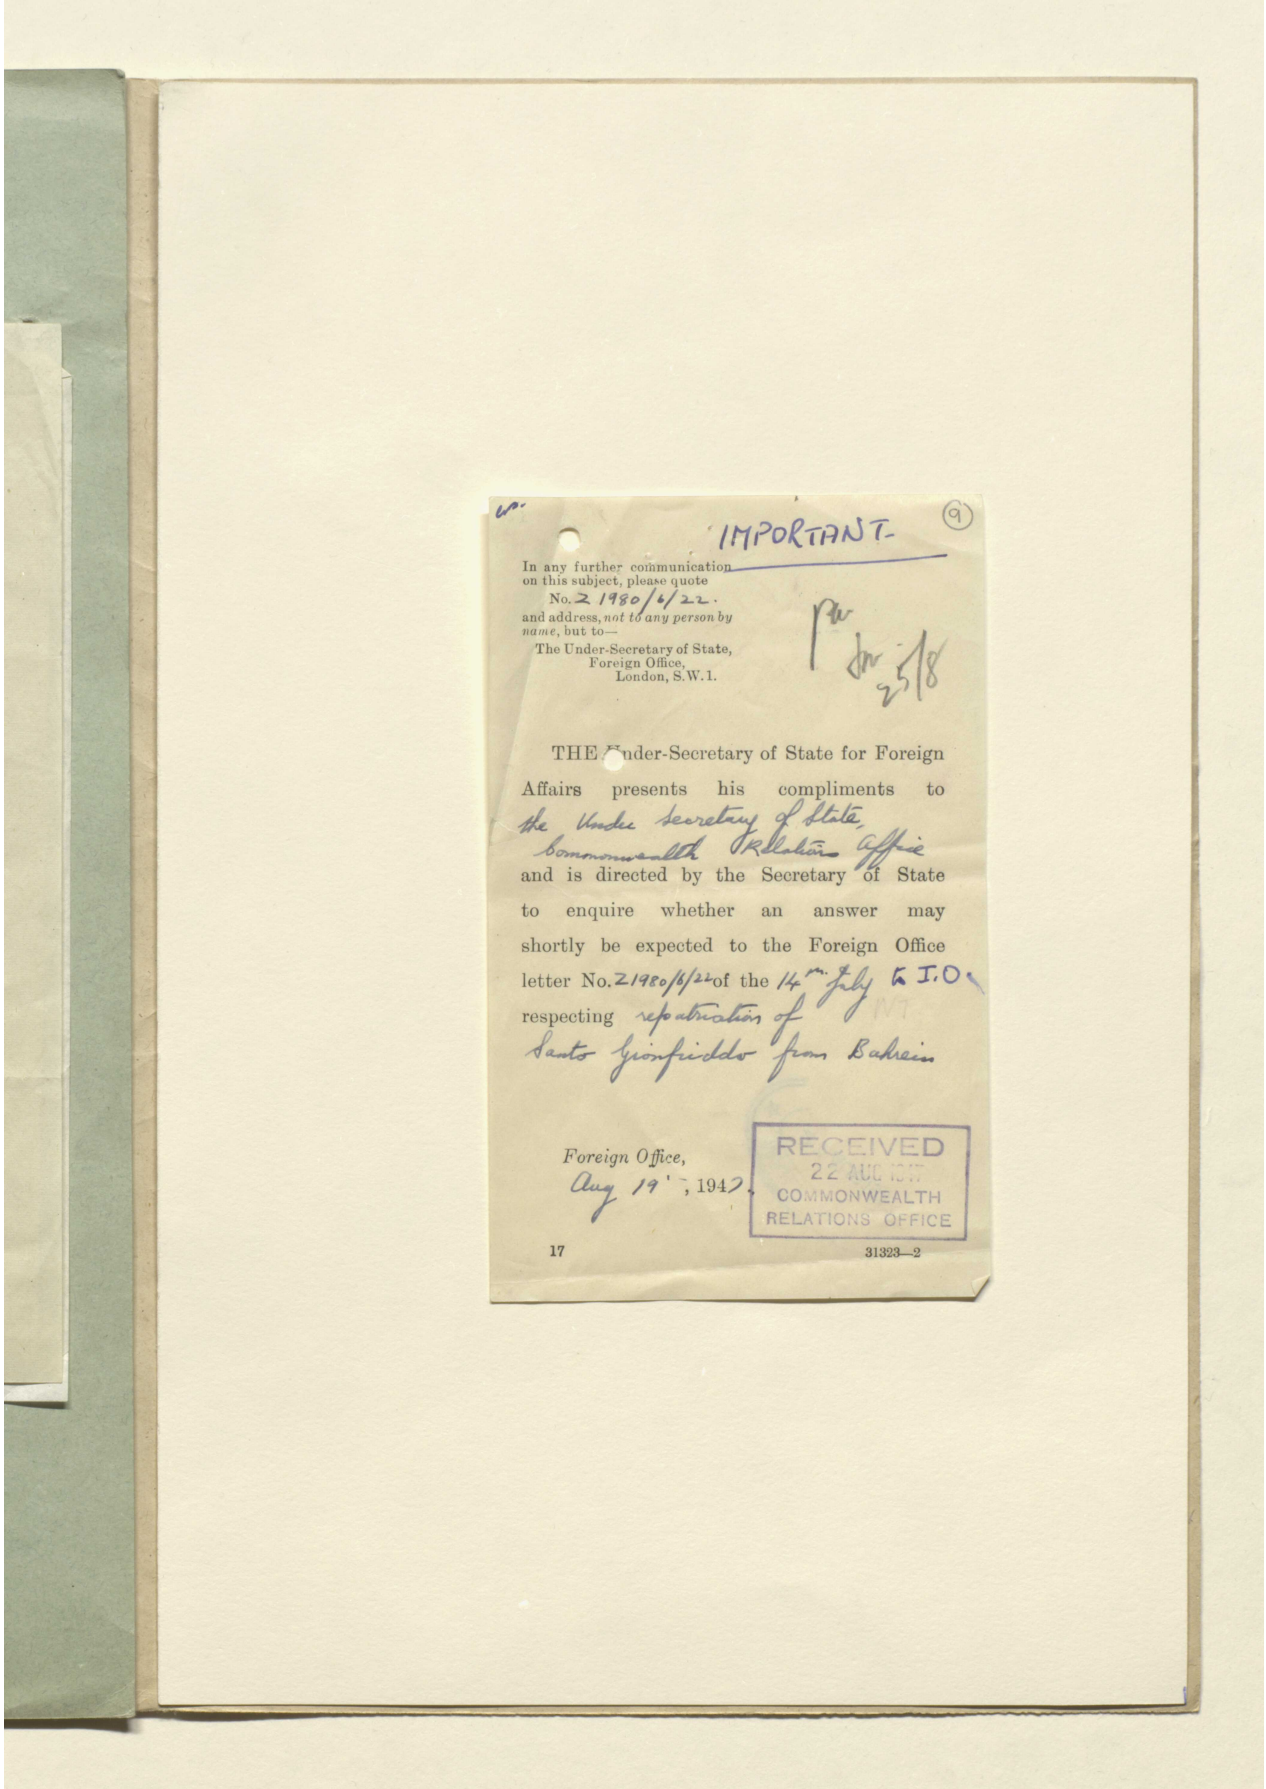 9
IMPORTANT
In any further communication
on this subject, please quote
No. Z 1980/6/22.
and address, not to any person by
name, but to—
The Under-Secretary of State,
Foreign Office,
London, S.W.1.
25/8
THE Under-Secretary of State for Foreign
Affairs presents his compliments to
the Under Secretary of State,
Commonwealth Relations Office
and is directed by the Secretary of State
to enquire whether an answer may
shortly be expected to the Foreign Office
letter No. Z1980/6/22 of the 14th July to I.O.
respecting repatriation of
Santo Gionfriddo from Bahrein
Foreign Office,
Aug 19, 1947.
RECEIVED
22 AUG 1947
COMMONWEALTH
RELATIONS OFFICE
17
31323—2